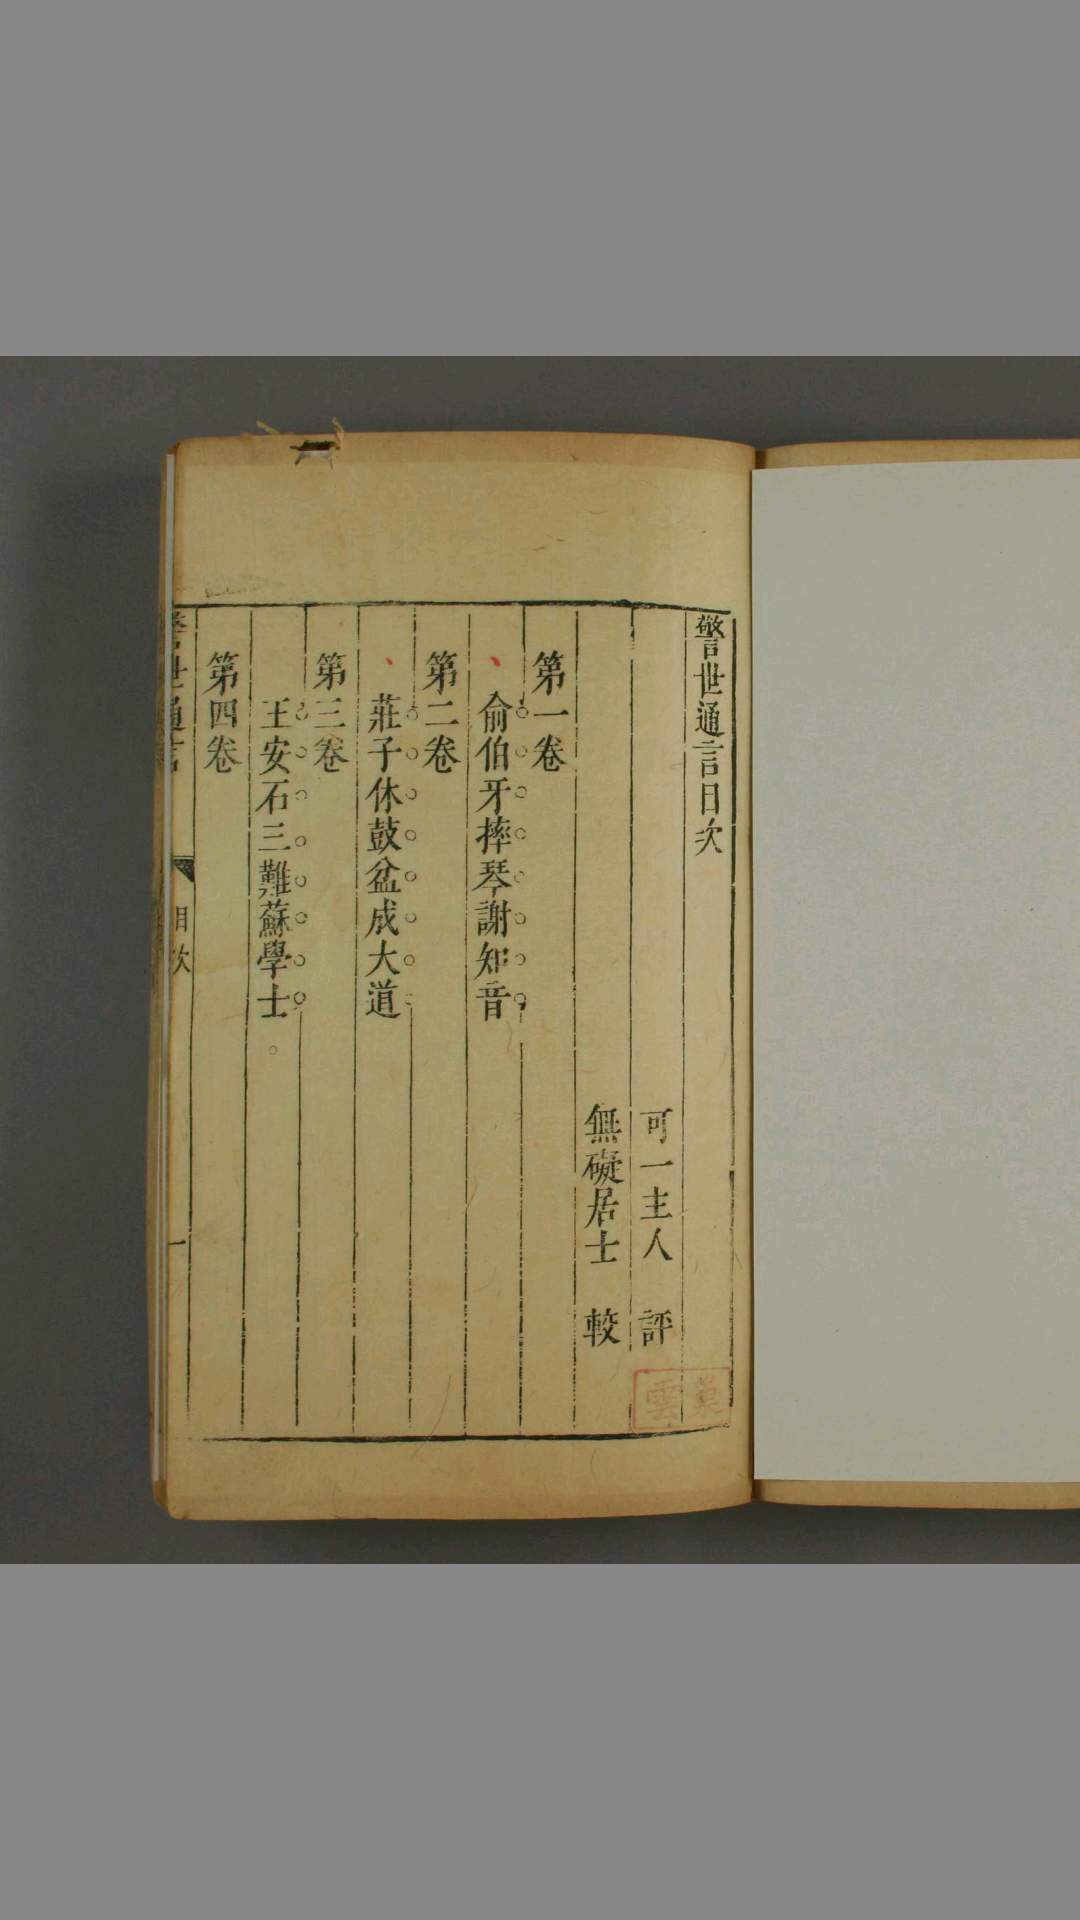 警世通言目次
可一主人　評
無礙居士　較
第一卷
俞伯牙摔琴謝知音
第二卷
莊子休鼓盆成大道
第三卷
王安石三難蘇學士
第四卷
警世通言　目次　一